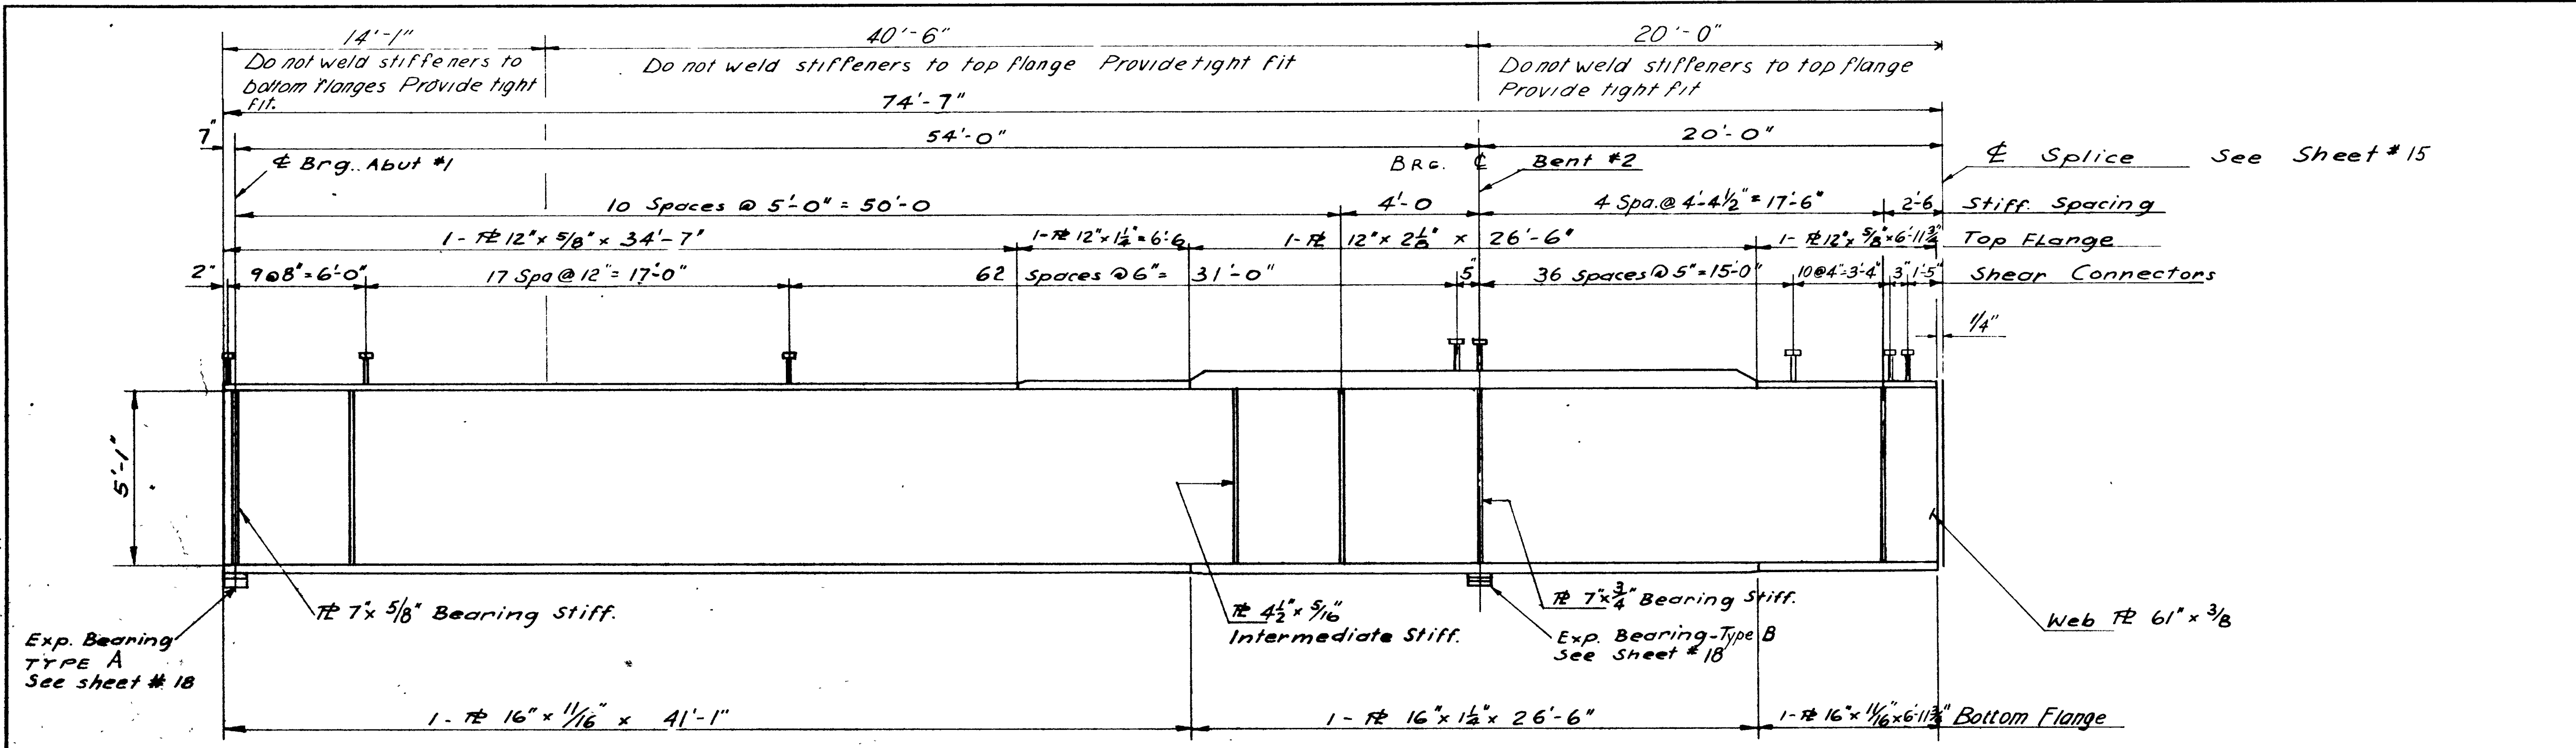 14'-1" 40'-6" 20'-0"
Do not weld stiffeners to
bottom flanges Provide tight
fit.
Do not weld stiffeners to top flange Provide tight fit
Do not weld stiffeners to top flange
Provide tight fit
74'-7"
7" 54'-0" 20'-0"
℄ Brg. Abut #1
BRG. ℄ Bent #2
℄ Splice See Sheet #15
10 Spaces @ 5'-0" = 50'-0 4'-0 4 Spa. @ 4'-4½" = 17'-6" 2'-6 Stiff. Spacing
1- PL 12" x 5/8" x 34'-7" 1- PL 12" x 1¼" = 6'-6 1- PL 12" x 2⅛" x 26'-6" 1- PL 12" x 5/8" x 6'-11¾" Top Flange
2" 9@8" = 6'-0" 17 Spa @ 12" = 17'-0" 62 Spaces @ 6" = 31'-0" 5" 36 Spaces @ 5" = 15'-0" 10@4" = 3'-4" 3" 1'-5" Shear Connectors
1/4"
5'-1"
PL 7" x 5/8" Bearing Stiff.
Exp. Bearing
TYPE A
See sheet # 18
PL 4½" x 5/16
Intermediate Stiff.
PL 7" x ¾" Bearing Stiff.
Exp. Bearing-Type B
See Sheet # 18
Web PL 61" x 3/8
1- PL 16" x 11/16" x 41'-1" 1- PL 16" x 1¼" x 26'-6" 1- PL 16" x 11/16" x 6'-11¾" Bottom Flange